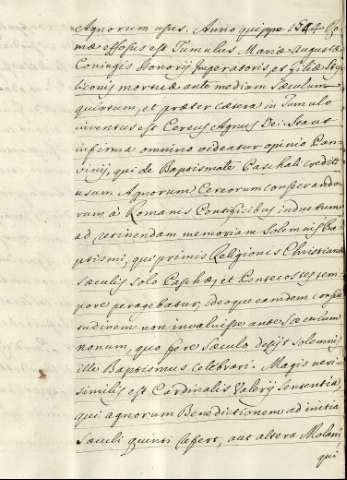 Agnorum usus. Anno quippe 1544 Ro-
mæ effosus est Tumulus Mariæ Augustæ
Coniugis Honorij Imperatoris, et Filiæ Sty-
liconis mortuæ ante mediam sæculum
quintum, et præter cætera in Tumulo
inventus est Cereus Agnus Dei. Ita ut
infirma omnino videatur opinio Pan-
vinij, qui de Baptismate Paschali credit
usum Agnorum Cereorum consecrando-
rum à Romanis Pontificibus inductum
ad retinendam memoriam Solemnis Ba-
ptismi, qui primis Religionis Christianæ
sæculis solo Paschæ, et Pentecostes tem-
pore peragebatur, ideoque eamdem consue-
tudinem non invaluisse ante sæculum
nonum, quo fere sæculo desijt solemnis
ille Baptismus celebrari. Magis veri-
similis est Cardinalis Valerij sententia,
qui agnorum Benedictionem ad initia
sæculi quinti refert, aut altera Molani,
qui